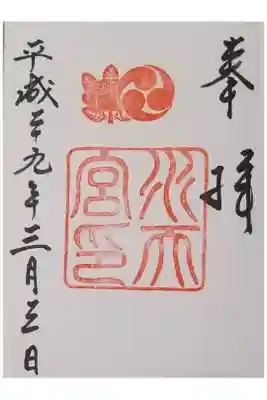 奉拝
水天
宮印
平成二十九年三月三日